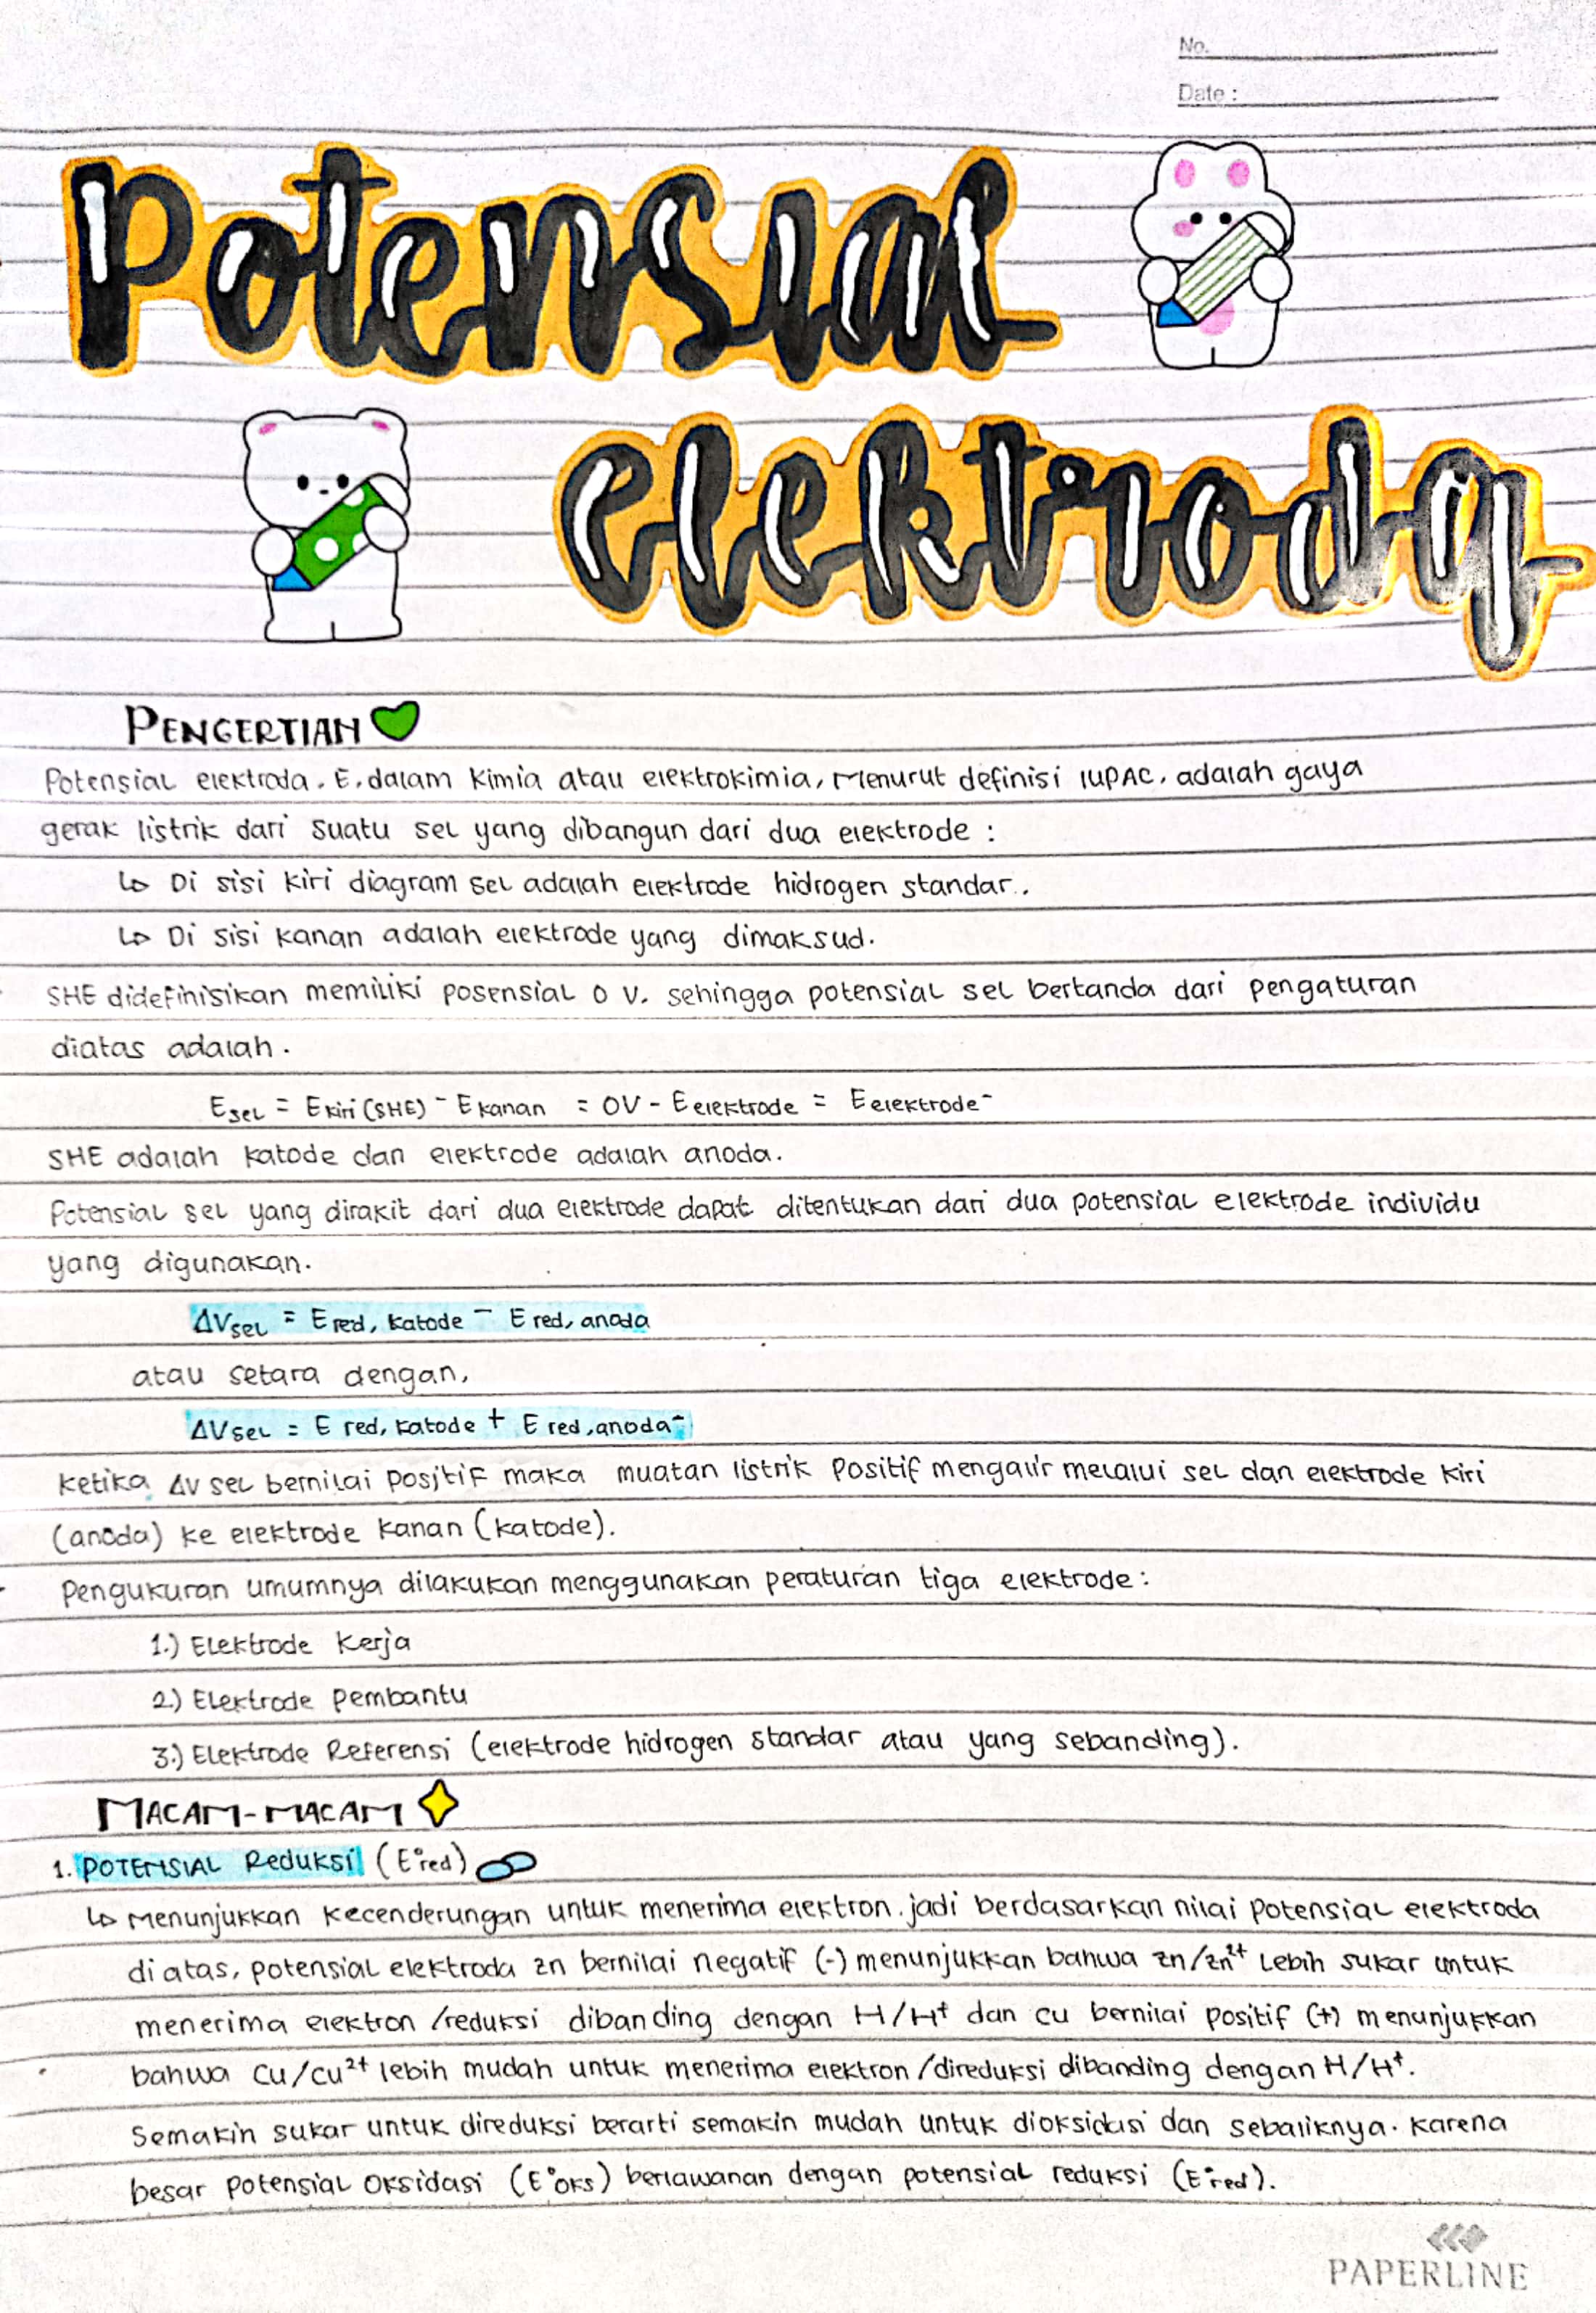 No.
Date :
Potensial
elektroda
PENGERTIAN
Potensial elektroda, E, dalam kimia atau elektrokimia, Menurut definisi IUPAC, adalah gaya
gerak listrik dari suatu sel yang dibangun dari dua elektrode :
↳ Di sisi kiri diagram sel adalah elektrode hidrogen standar.
↳ Di sisi kanan adalah elektrode yang dimaksud.
SHE didefinisikan memiliki posensial 0 V. sehingga potensial sel bertanda dari pengaturan
diatas adalah.
Esel = Ekiri (SHE) - Ekanan = 0V - Eelektrode = Eelektrode-
SHE adalah katode dan elektrode adalah anoda.
Potensial sel yang dirakit dari dua elektrode dapat ditentukan dari dua potensial elektrode individu
yang digunakan.
ΔVsel = Ered, katode - Ered, anoda
atau setara dengan,
ΔVsel = E red, katode + E red, anoda-
Ketika ΔV sel bernilai positif maka muatan listrik positif mengalir melalui sel dan elektrode kiri
(anoda) ke elektrode kanan (katode).
Pengukuran umumnya dilakukan menggunakan peraturan tiga elektrode :
1.) Elektrode kerja
2.) Elektrode pembantu
3.) Elektrode Referensi (elektrode hidrogen standar atau yang sebanding).
MACAM-MACAM
1. POTENSIAL Reduksi (E°red)
↳ Menunjukkan kecenderungan untuk menerima elektron. jadi berdasarkan nilai potensial elektroda
diatas, potensial elektroda zn bernilai negatif (-) menunjukkan bahwa zn/zn²⁺ lebih sukar untuk
menerima elektron /reduksi dibanding dengan H/H⁺ dan cu bernilai positif (+) menunjukkan
bahwa Cu/cu²⁺ lebih mudah untuk menerima elektron /direduksi dibanding dengan H/H⁺.
Semakin sukar untuk direduksi berarti semakin mudah untuk dioksidasi dan sebaliknya. karena
besar potensial oksidasi (E°oks) berlawanan dengan potensial reduksi (E°red).
PAPERLINE